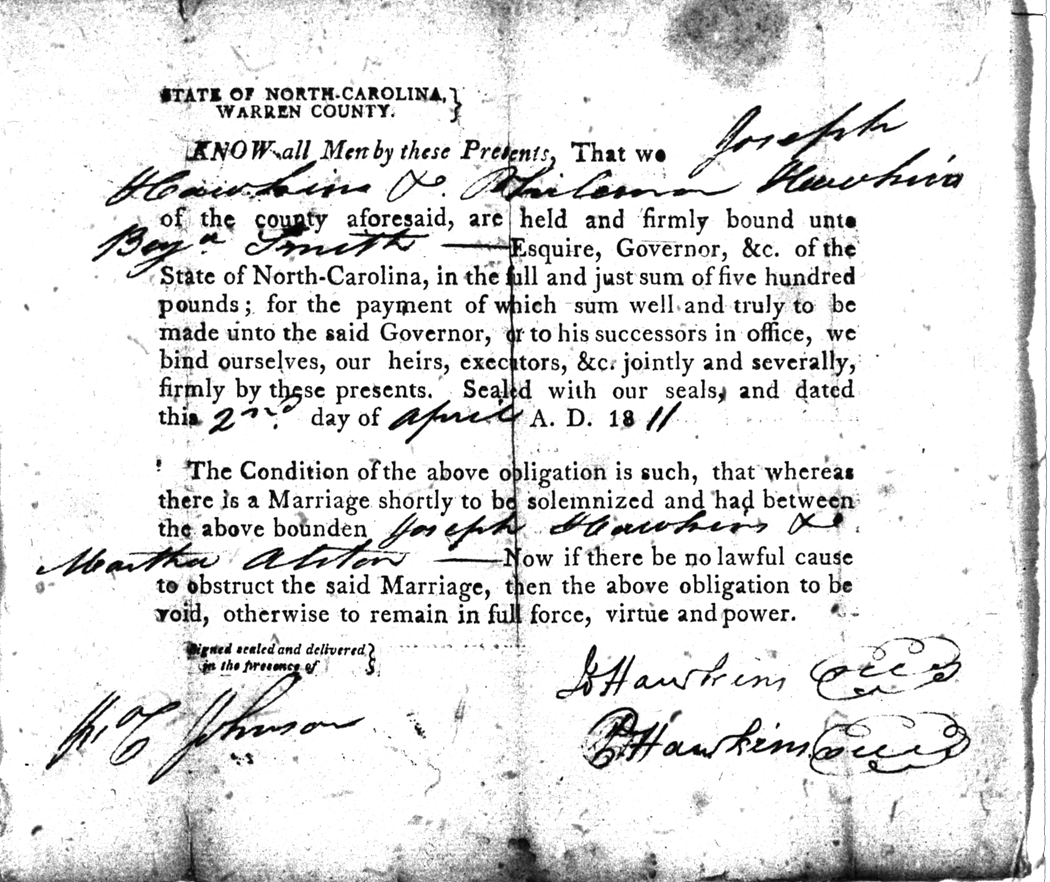 STATE OF NORTH-CAROLINA,}
WARREN COUNTY.
KNOW all Men by these Presents, That we Joseph
Hawkins & Philemon Hawkins
of the county aforesaid, are held and firmly bound unto
Benjn Smith — Esquire, Governor, &c. of the
State of North-Carolina, in the full and just sum of five hundred
pounds; for the payment of which sum well and truly to be
made unto the said Governor, or to his successors in office, we
bind ourselves, our heirs, executors, &c. jointly and severally,
firmly by these presents. Sealed with our seals, and dated
this 2nd. day of April A. D. 1811
The Condition of the above obligation is such, that whereas
there is a Marriage shortly to be solemnized and had between
the above bounden Joseph Hawkins &
Martha Alston — Now if there be no lawful cause
to obstruct the said Marriage, then the above obligation to be
void, otherwise to remain in full force, virtue and power.
Signed sealed and delivered}
in the presence of
Johnson
Jo Hawkins
P Hawkins